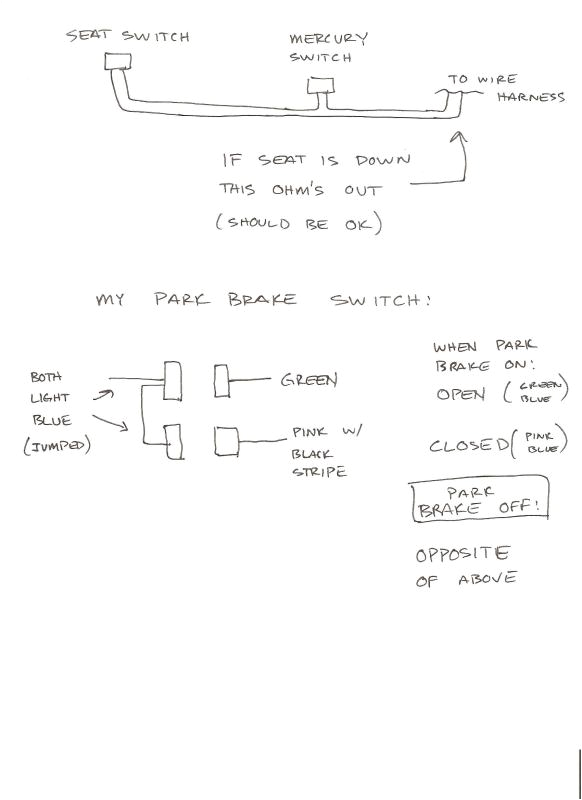 SEAT SWITCH
MERCURY
SWITCH
TO WIRE
HARNESS
IF SEAT IS DOWN
THIS OHM'S OUT
(SHOULD BE OK)
MY PARK BRAKE SWITCH:
BOTH
LIGHT
BLUE
(JUMPED)
GREEN
PINK W/
BLACK
STRIPE
WHEN PARK
BRAKE ON:
OPEN (GREEN
BLUE)
CLOSED (PINK
BLUE)
PARK
BRAKE OFF:
OPPOSITE
OF ABOVE